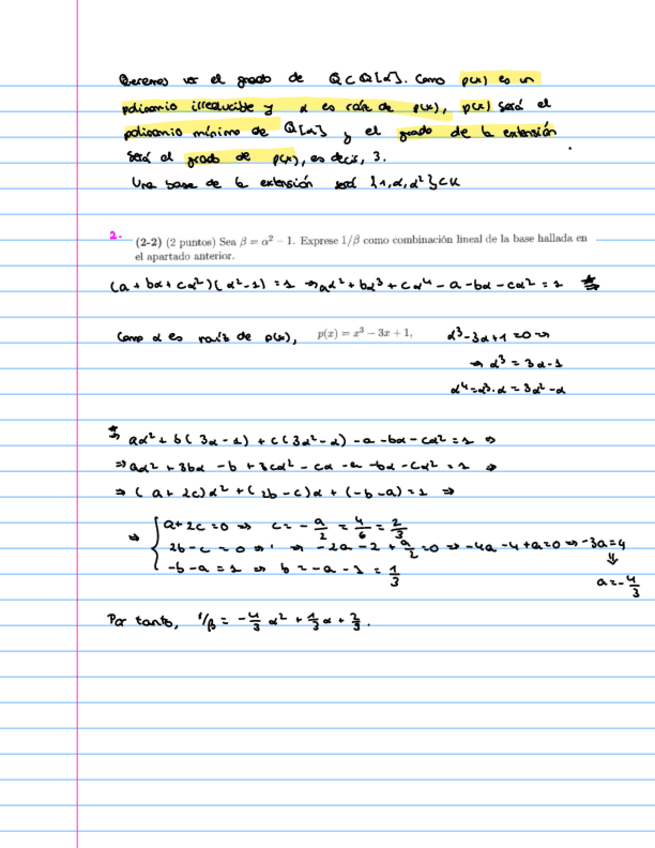 Queremos ver el grado de Q⊂Q[α]. Como p(x) es un
polinomio irreducible y α es raíz de p(x), p(x) será el
polinomio mínimo de Q[α] y el grado de la extensión
será el grado de p(x), es decir, 3.
Una base de la extensión será {1,α,α²}⊂K
2. (2-2) (2 puntos) Sea β = α² − 1. Exprese 1/β como combinación lineal de la base hallada en
el apartado anterior.
(a + bα + cα²)(α²-1) = 1 ⇒ aα² + bα³ + cα⁴ - a - bα - cα² = 1 *
Como α es raíz de p(x), p(x) = x³ − 3x + 1, α³-3α+1=0 ⇒
⇒ α³ = 3α-1
α⁴=α³·α = 3α²-α
* ⇒ aα² + b(3α-1) + c(3α²-α) - a - bα - cα² = 1 ⇒
⇒ aα² + 3bα - b + 3cα² - cα - a - bα - cα² = 1 ⇒
⇒ (a+2c)α² + (2b-c)α + (-b-a) = 1 ⇒
⇒ { a+2c=0 ⇒ c = -a/2 = 4/6 = 2/3
2b-c=0 ⇒ -2a-2+a/2=0 ⇒ -4a-4+a=0 ⇒ -3a=4
-b-a=1 ⇒ b=-a-1=1/3 ⇓
a=-4/3
Por tanto, 1/β = -4/3 α² + 1/3 α + 2/3.